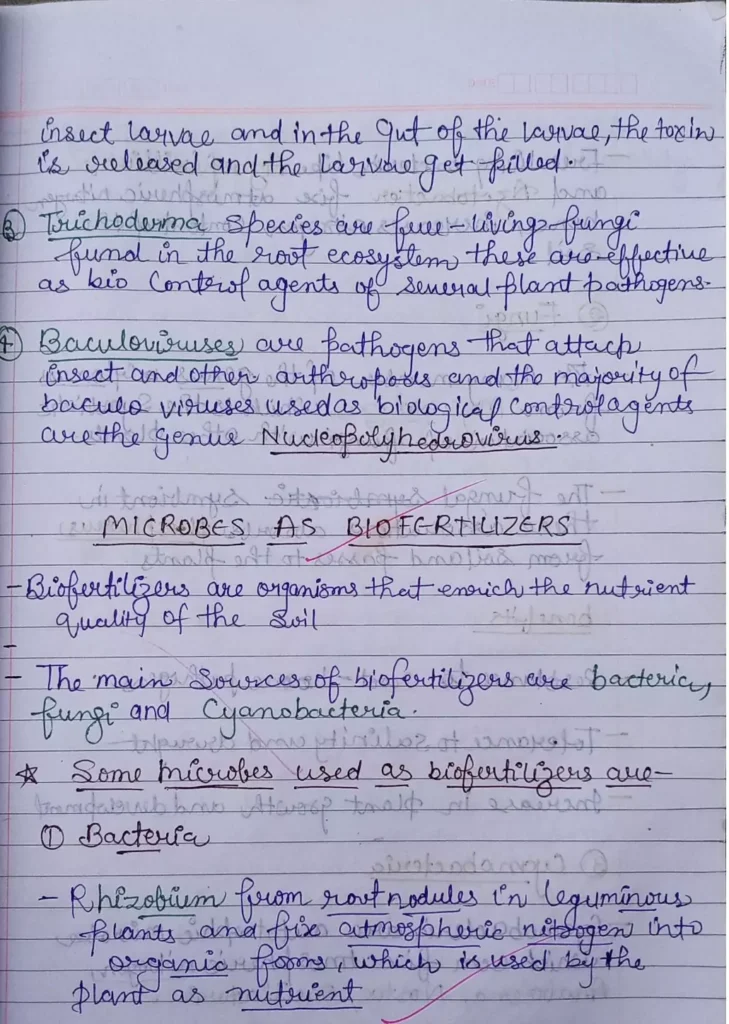 insect larvae and in the gut of the larvae, the toxin
is released and the larvae get killed.
③ Trichoderma species are free-living fungi
fund in the root ecosystem these are effective
as bio control agents of several plant pathogens.
④ Baculoviruses are pathogens that attack
insect and other arthropods and the majority of
baculo viruses used as biological control agents
are the genus Nucleopolyhedrovirus.
MICROBES AS BIOFERTILIZERS
- Biofertilizers are organisms that enrich the nutrient
quality of the soil
-
- The main sources of biofertilizers are bacteria,
fungi and Cyanobacteria.
☆ Some microbes used as biofertilizers are-
① Bacteria
- Rhizobium from root nodules in leguminous
plants and fix atmospheric nitrogen into
organic forms, which is used by the
plant as nutrient